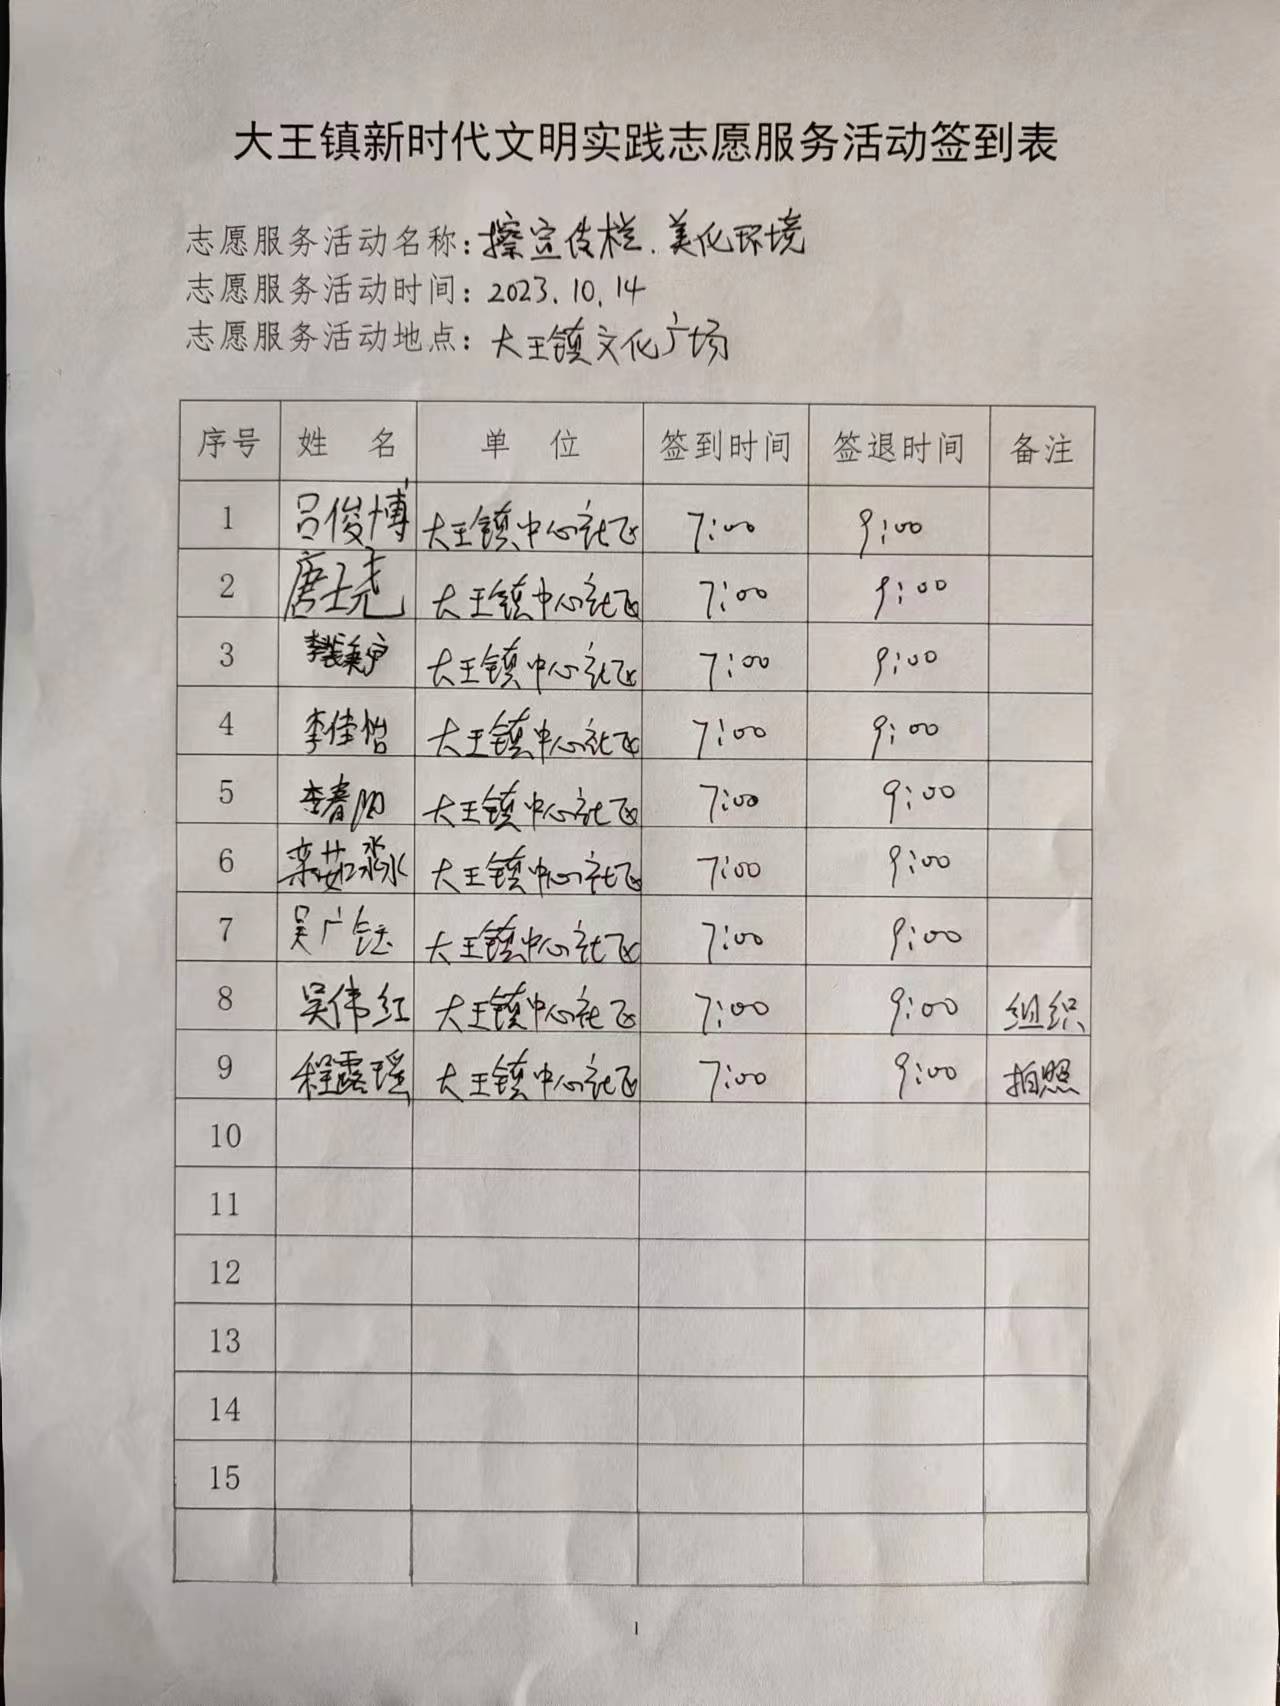 大王镇新时代文明实践志愿服务活动签到表
志愿服务活动名称:擦宣传栏.美化环境
志愿服务活动时间:2023.10.14
志愿服务活动地点:大王镇文化广场
序号 姓 名 单 位 签到时间 签退时间 备注
1 吕俊博 大王镇中心社区 7:00 9:00
2 唐士尧 大王镇中心社区 7:00 9:00
3 李 大王镇中心社区 7:00 9:00
4 李佳怡 大王镇中心社区 7:00 9:00
5 李春阳 大王镇中心社区 7:00 9:00
6 栾茹淼 大王镇中心社区 7:00 9:00
7 吴广钰 大王镇中心社区 7:00 9:00
8 吴伟红 大王镇中心社区 7:00 9:00 组织
9 程露瑶 大王镇中心社区 7:00 9:00 拍照
10
11
12
13
14
15
1